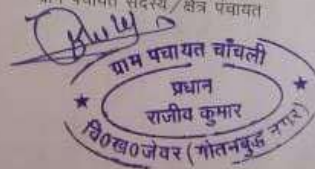 ग्राम पंचायत सदस्य/क्षेत्र पंचायत
ग्राम पंचायत चाँचली
प्रधान
राजीव कुमार
वि०ख०जेवर (गौतमबुद्ध नगर)